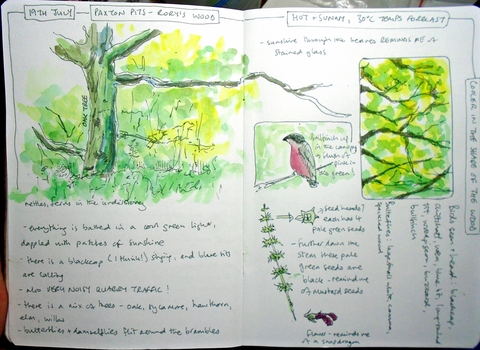 19TH JULY
PAXTON PITS - RORY'S WOOD
OAK TREE
nettles, ferns in the understorey
- everything is bathed in a cool green light,
dappled with patches of sunshine
- there is a blackcap (I think!) singing, and blue tits
are calling
- also VERY NOISY QUARRY TRAFFIC!
- there is a mix of trees - oak, sycamore, hawthorn,
elm, willow
- butterflies + damselflies flit around the brambles
HOT + SUNNY, 30°C TEMPS FORECAST
- sunshine through the leaves REMINDS ME of
stained glass
bullfinch up
in the canopy
a flash of
pink in
the green!
seed heads?
each has 4
pale green seeds
- further down the
stem these pale
green seeds are
black - remind me
of mustard seeds
flower - reminds me
of a snapdragon
COOLER IN THE SHADE OF THE WOOD
Birds seen + heard: blackcap,
chiffchaff, wren, blue tit, long-tailed
tit, woodpigeon, buzzard,
bullfinch
Butterflies: large/small white, comma,
speckled wood